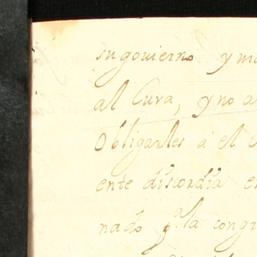 su govierno y m
al Cura, y no a
Obligarles a el
ente discordia e
nado q.e la congr